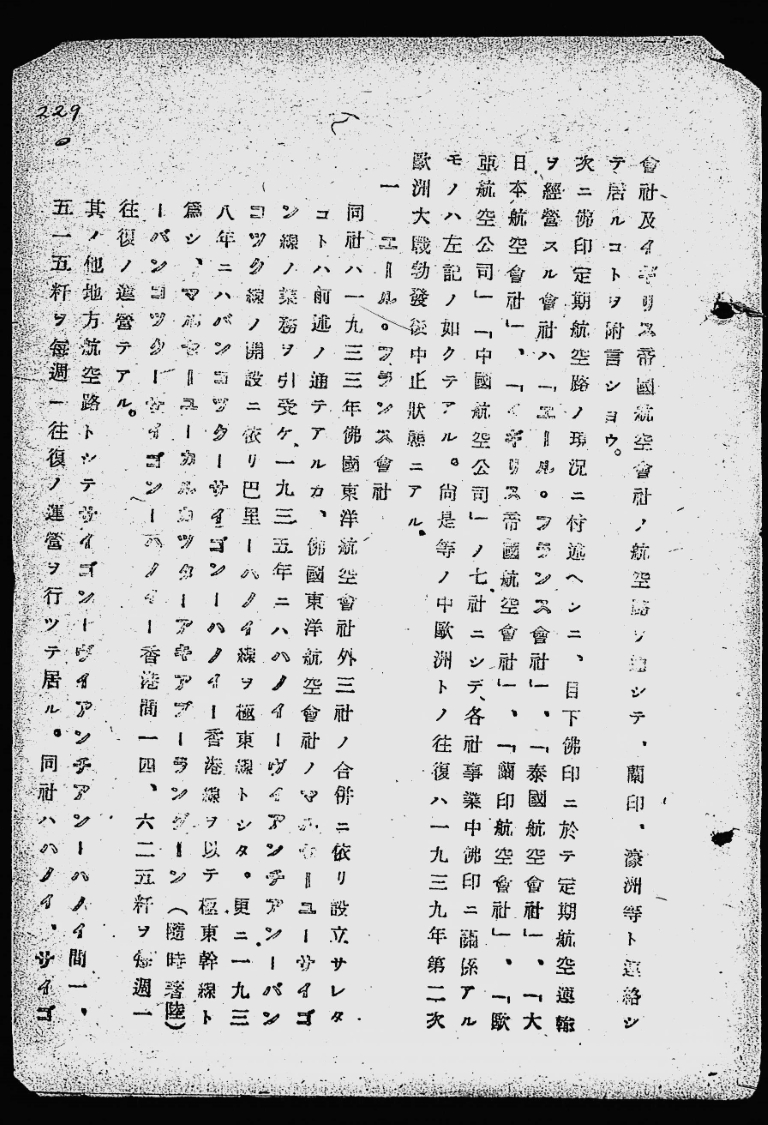 229
會社及イギリス帝國航空會社ノ航空路ヲ通シテ、蘭印、濠洲等ト連絡シ
テ居ルコトヲ附言シヨウ。
次ニ佛印定期航空路ノ現況ニ付述ヘンニ、目下佛印ニ於テ定期航空運輸
ヲ經營スル會社ハ「エール。フランス會社」、「泰國航空會社」、「大
日本航空會社」、「イギリス帝國航空會社」、「蘭印航空會社」、「歐
亞航空公司」「中國航空公司」ノ七社ニシデ、各社事業中佛印ニ關係アル
モノハ左記ノ如クテアル。尚是等ノ中歐洲トノ往復ハ一九三九年第二次
歐洲大戰勃發後中止狀態ニアル。
一 エール。フランス會社
同社ハ一九三三年佛國東洋航空會社外三社ノ合併ニ依リ設立サレタ
コトハ前述ノ通テアルカ、佛國東洋航空會社ノマルセーユーサイゴ
ン線ノ業務ヲ引受ケ、一九三五年ニハハノイーヴイアンチアンーバン
コツク線ノ開設ニ依リ巴里ーハノイ線ヲ極東線トシタ。更ニ一九三
八年ニハバンコツクーサイゴンーハノイー香港線ヲ以テ極東幹線ト
爲シ、マルセーユーカルカツターアキアブーラングーン（隨時着陸）
ーバンコツクーサイゴンーハノイー香港間一四、六二五粁ヲ每週一
往復ノ運營テアル。
其ノ他地方航空路トシテサイゴンーヴイアンチアンーハノイ間一、
五一五粁ヲ每週一往復ノ運營ヲ行ツテ居ル。同社ハハノイ、サイゴ